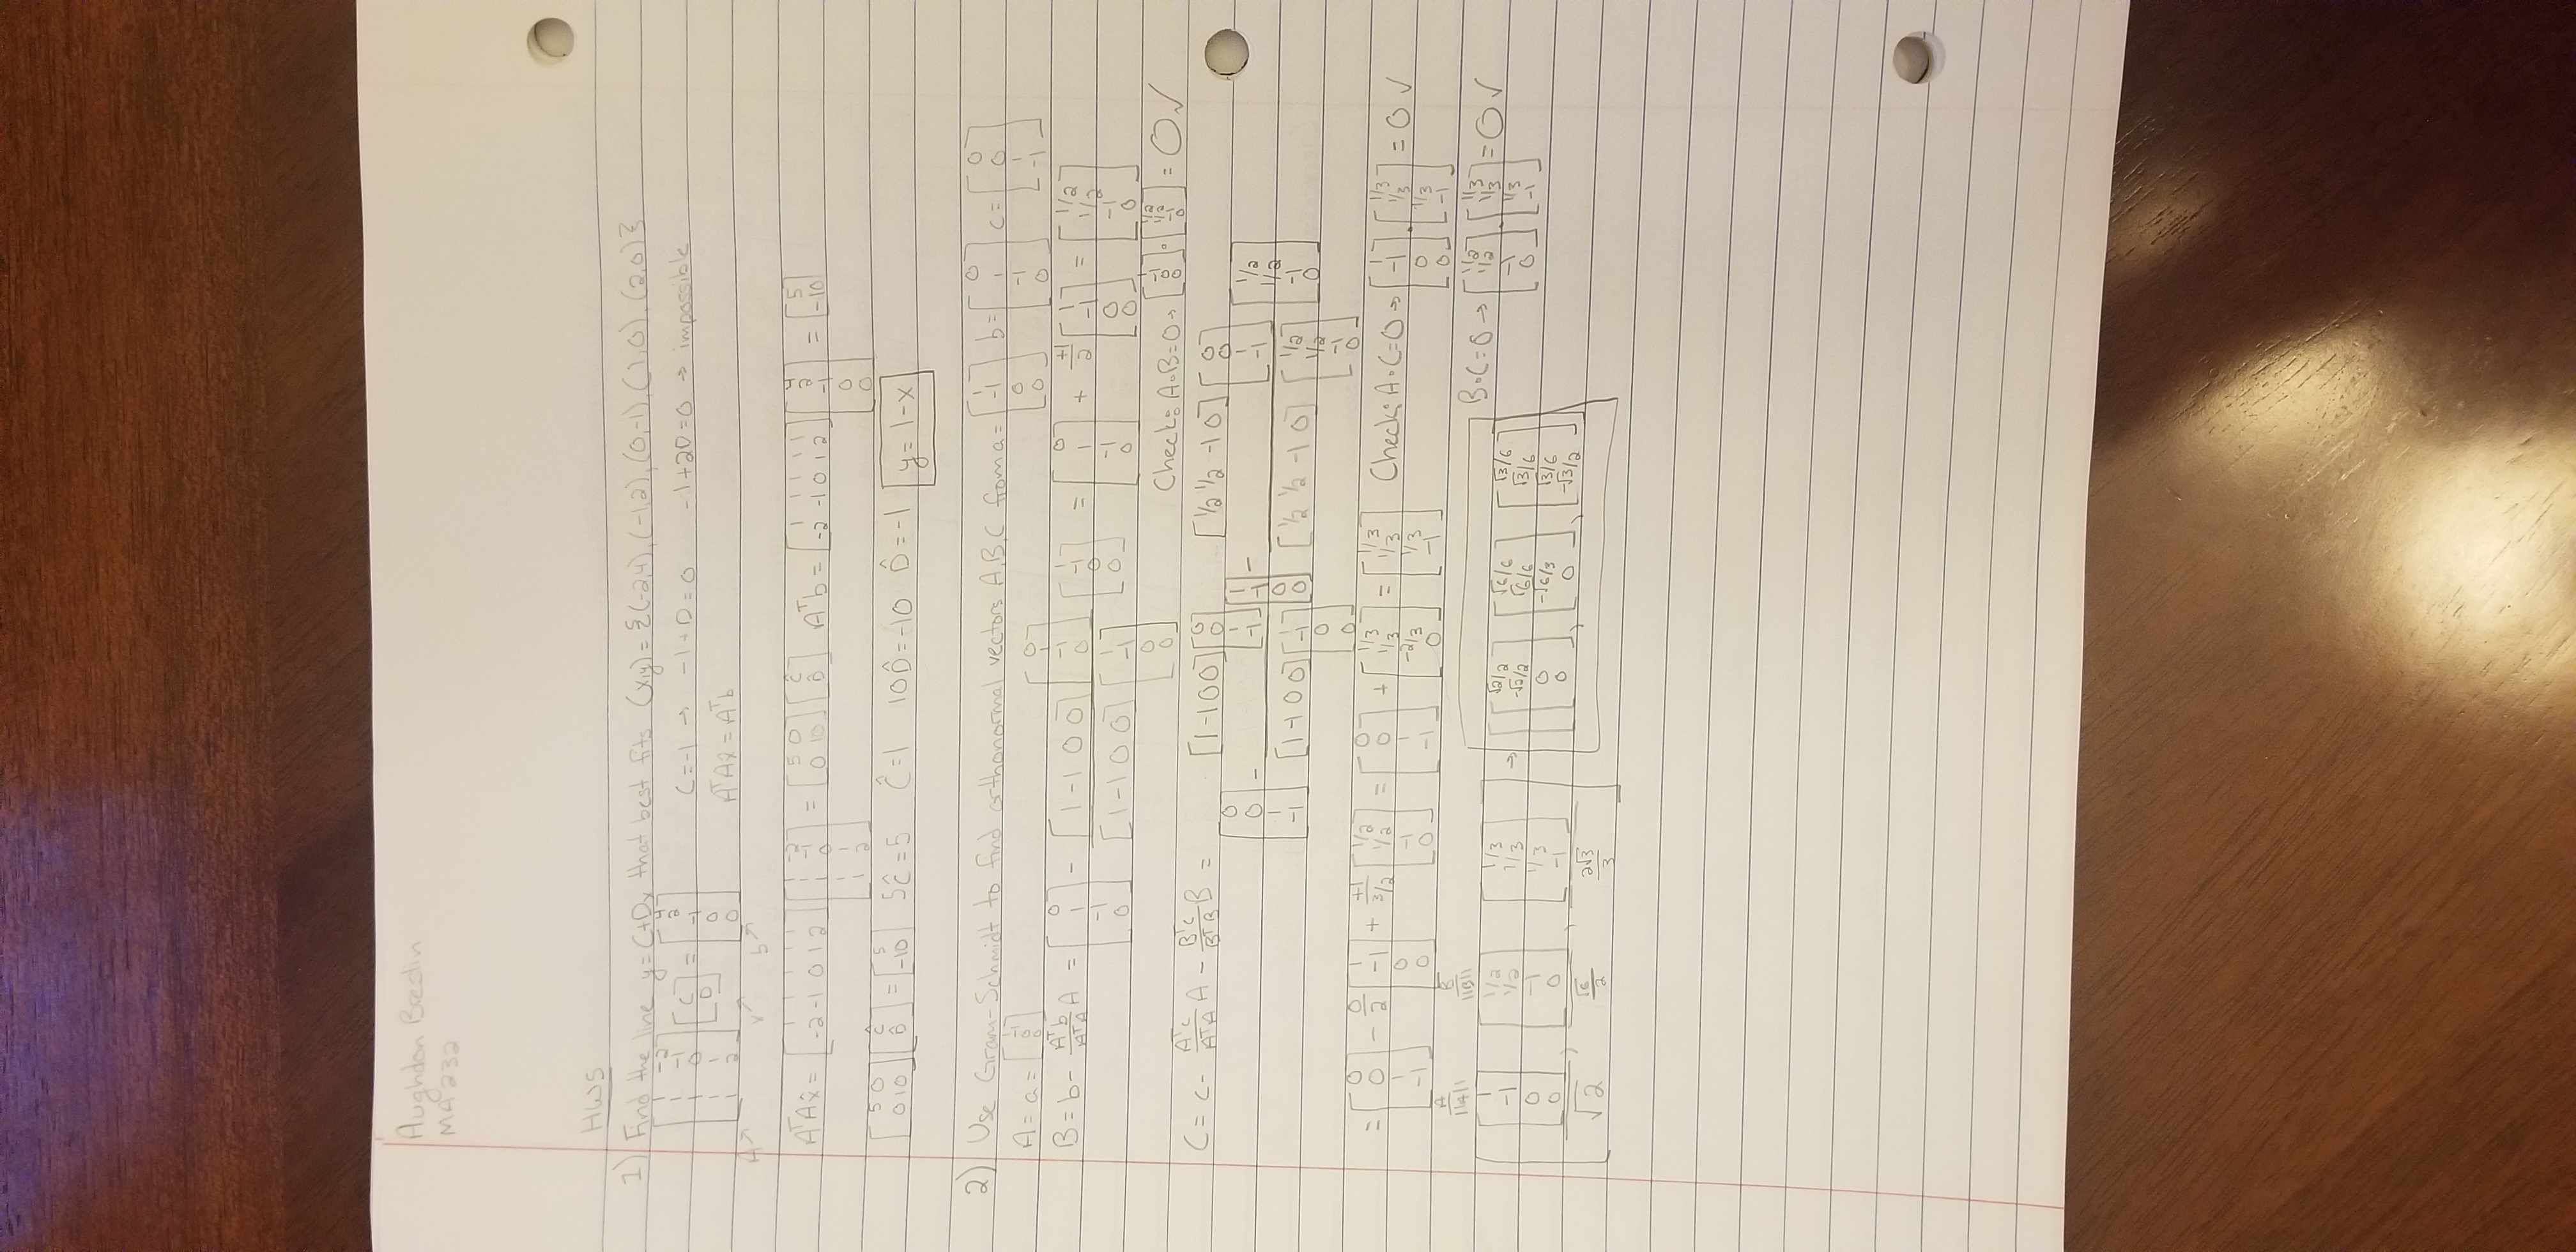 Aughdon Breslin
MA 232
HW5
1) Find the line y=C+Dx that best fits (x,y)={(-2,4),(-1,2),(0,-1),(1,0),(2,0)}
[1 -2; 1 -1; 1 0; 1 1; 1 2] [C; D] = [4; 2; -1; 0; 0] C=-1 → -1+D=0 -1+2D=0 → impossible
A↗ x↗ b↗ AᵀAx̂=Aᵀb
AᵀAx̂= [1 1 1 1 1; -2 -1 0 1 2] [1 -2; 1 -1; 1 0; 1 1; 1 2] = [5 0; 0 10] [Ĉ; D̂] Aᵀb= [1 1 1 1 1; -2 -1 0 1 2] [4; 2; -1; 0; 0] = [5; -10]
[5 0; 0 10] [Ĉ; D̂] = [5; -10] 5Ĉ=5 Ĉ=1 10D̂=-10 D̂=-1 y=1-x
2) Use Gram-Schmidt to find orthonormal vectors A,B,C from a= [1; -1; 0; 0] b= [0; 1; -1; 0] c= [0; 0; 1; -1]
A=a= [1; -1; 0; 0]
B=b- Aᵀb/AᵀA A = [0; 1; -1; 0] - [1 -1 0 0] [0; 1; -1; 0] / [1 -1 0 0] [1; -1; 0; 0] [1; -1; 0; 0] = [0; 1; -1; 0] + +1/2 [1; -1; 0; 0] = [1/2; 1/2; -1; 0]
Check: A·B=0→ [1; -1; 0; 0] · [1/2; 1/2; -1; 0] = 0 ✓
C=c- Aᵀc/AᵀA A - Bᵀc/BᵀB B = [0; 0; 1; -1] - [1 -1 0 0] [0; 0; 1; -1] / [1 -1 0 0] [1; -1; 0; 0] [1; -1; 0; 0] - [1/2 1/2 -1 0] [0; 0; 1; -1] / [1/2 1/2 -1 0] [1/2; 1/2; -1; 0] [1/2; 1/2; -1; 0]
= [0; 0; 1; -1] - 0/2 [1; -1; 0; 0] + +1/3/2 [1/2; 1/2; -1; 0] = [0; 0; 1; -1] + [1/3; 1/3; -2/3; 0] = [1/3; 1/3; 1/3; -1] Check: A·C=0→ [1; -1; 0; 0] · [1/3; 1/3; 1/3; -1] = 0 ✓
A/||A|| B/||B||
B·C=0→ [1/2; 1/2; -1; 0] · [1/3; 1/3; 1/3; -1] = 0 ✓
[ [1; -1; 0; 0]/√2 , [1/2; 1/2; -1; 0]/(√6/2) , [1/3; 1/3; 1/3; -1]/(2√3/3) ] → [ [√2/2; -√2/2; 0; 0] , [√6/6; √6/6; -√6/3; 0] , [√3/6; √3/6; √3/6; -√3/2] ]